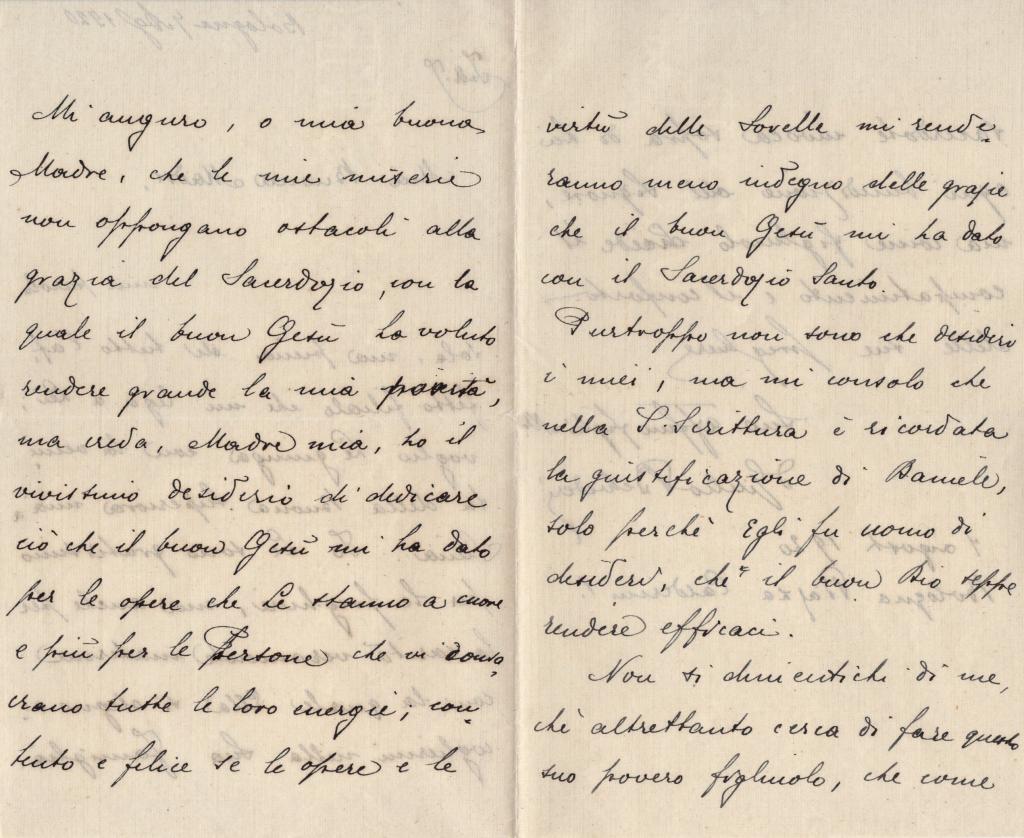 Mi auguro, o mia buona
Madre, che le mie miserie
non oppongano ostacoli alla
grazia del Sacerdozio, con la
quale il buon Gesù ha voluto
rendere grande la mia povertà,
ma creda, Madre mia, ho il
vivissimo desiderio di dedicare
ciò che il buon Gesù mi ha dato
per le opere che Le stanno a cuore
e più per le Persone che vi consa
crano tutte le loro energie; con
tento e felice se le opere e le
virtù delle Sorelle mi rende
ranno meno indegno delle grazie
che il buon Gesù mi ha dato
con il Sacerdozio Santo.
Purtroppo non sono che desideri
i miei, ma mi consolo che
nella S. Scrittura è ricordata
la giustificazione di Daniele,
solo perchè Egli fu uomo di
desideri, che il buon Dio seppe
rendere efficaci.
Non si dimentichi di me,
chè altrettanto cerca di fare questo
suo povero figliuolo, che come